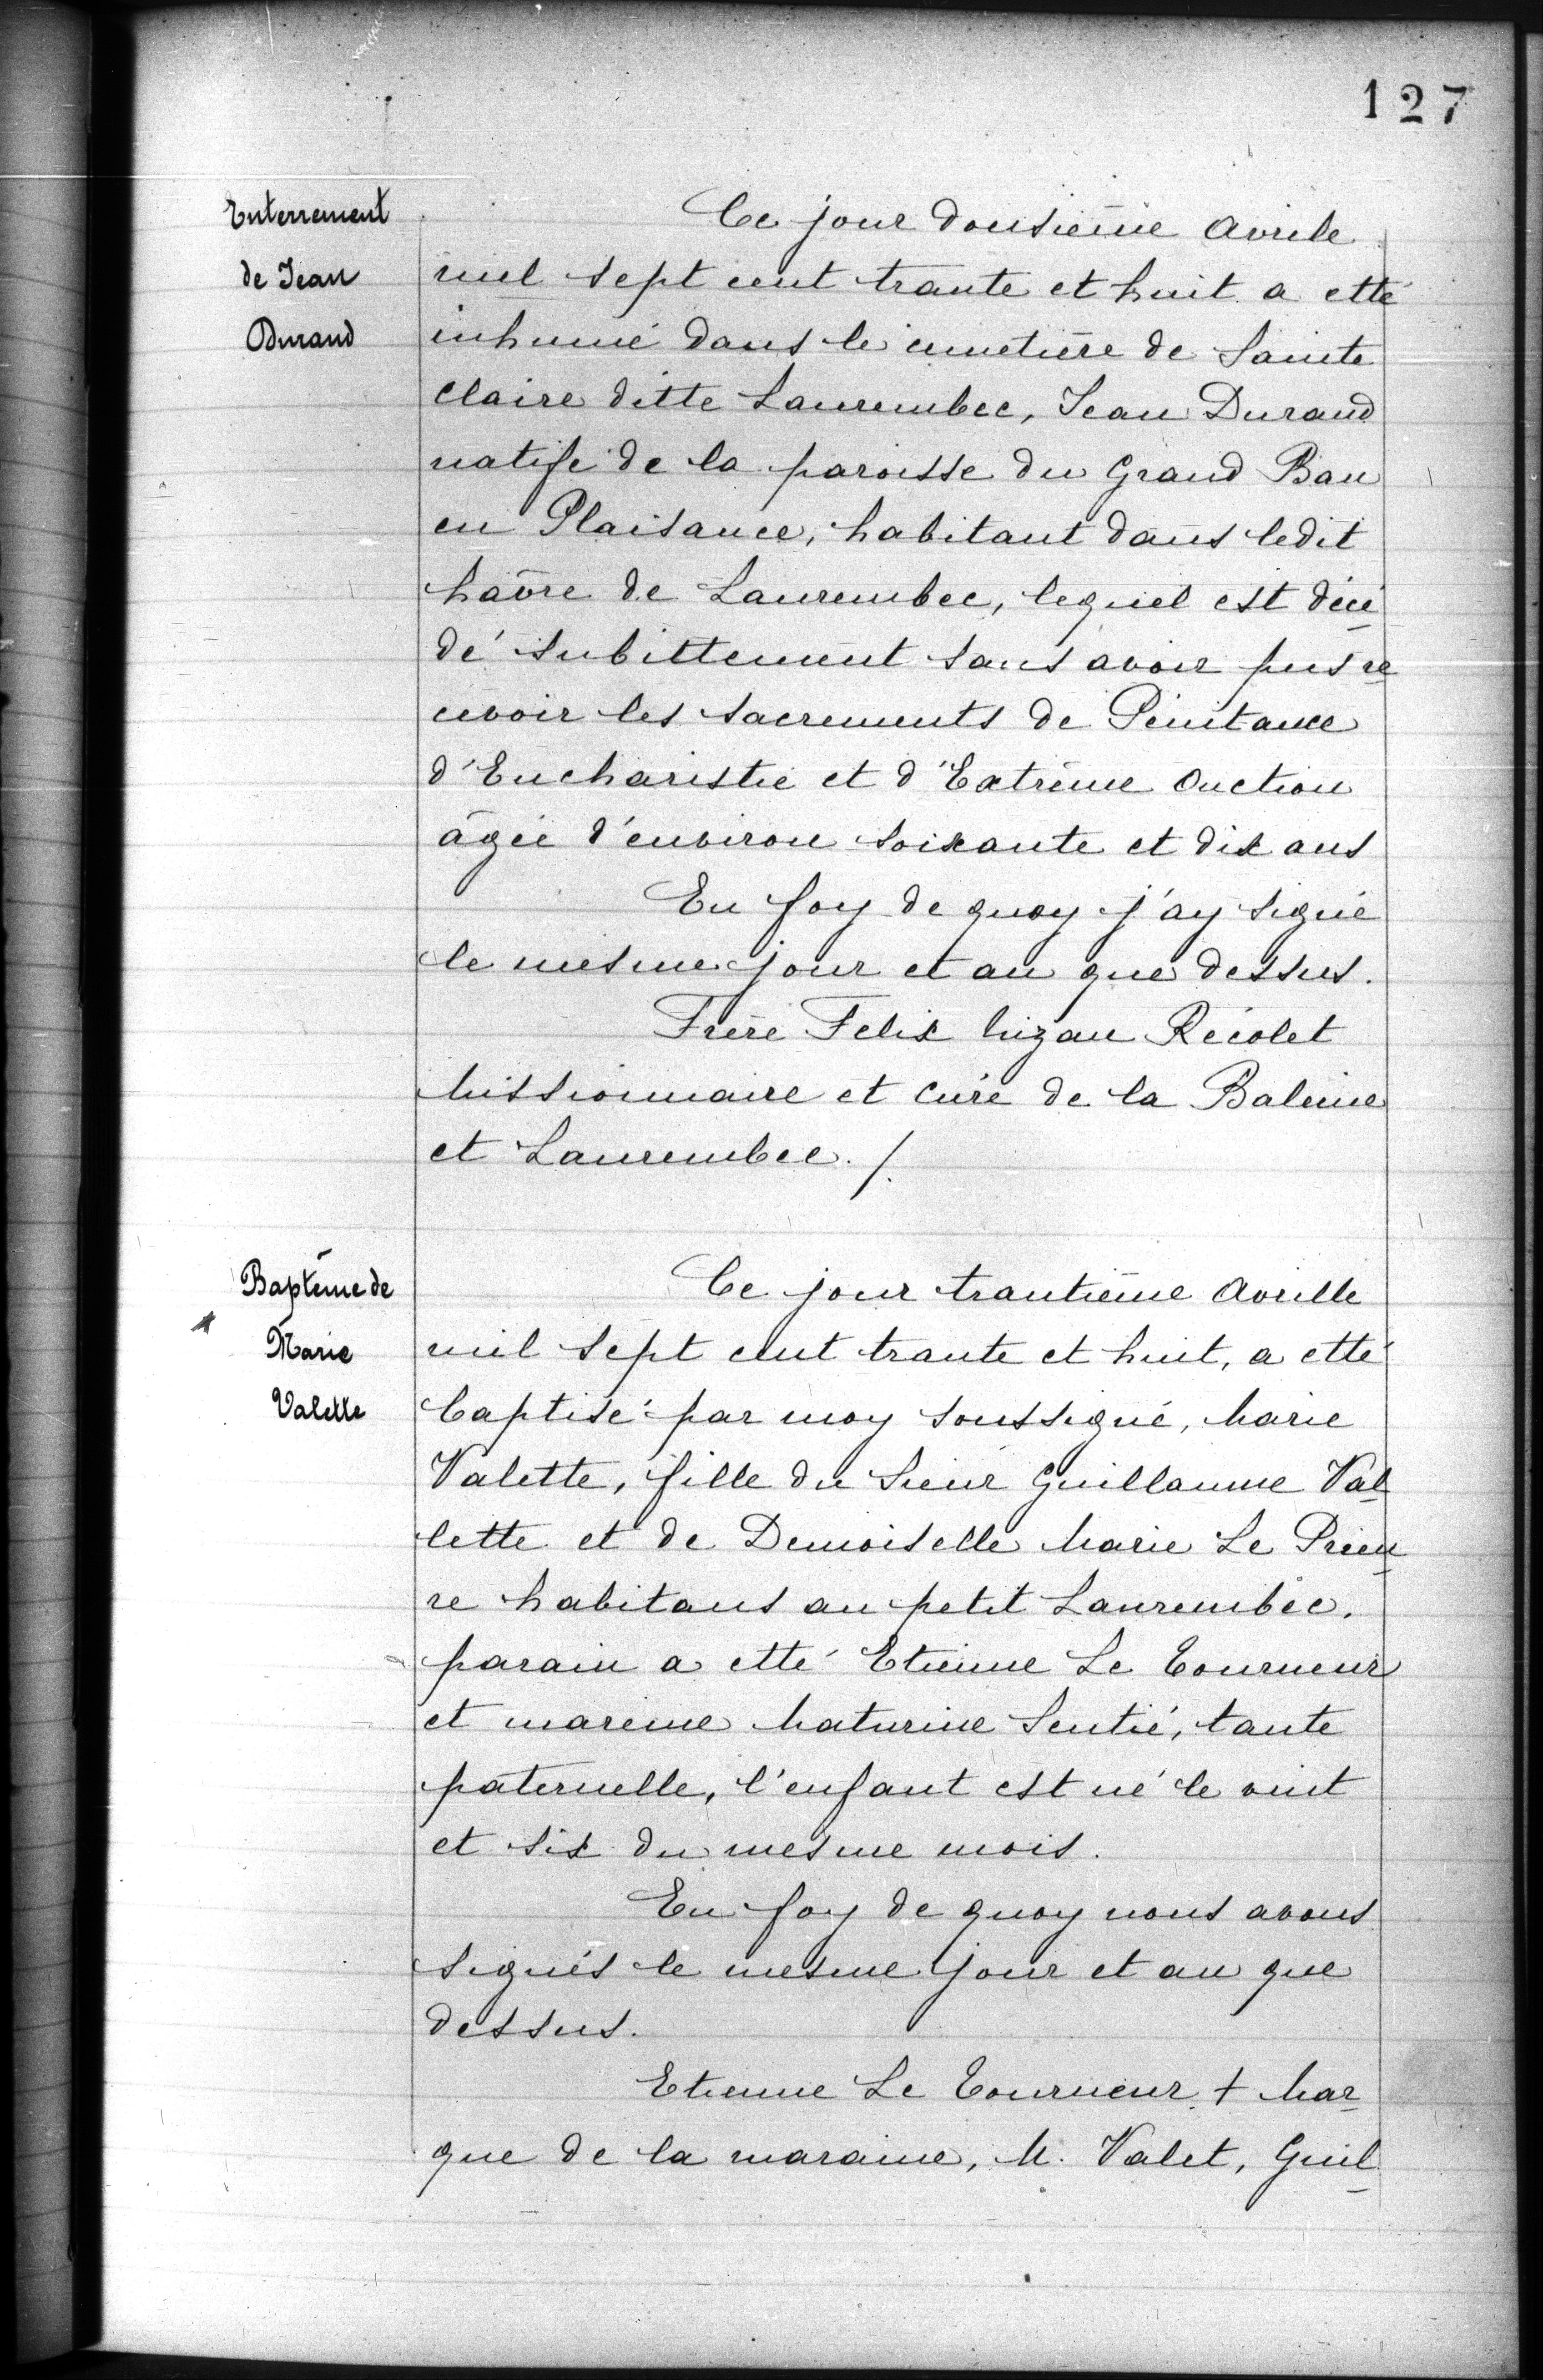 127
Enterrement
de Jean
Durand
Ce jour dousième Avrile
mil sept cent trante et huit a etté
inhumé dans le cimetière de Sainte
Claire ditte Laurembec, Jean Durand
natife de la paroisse du Grand Bau
en Plaisance, habitant dans ledit
havre de Laurembec, lequel est décé
dé subittement sans avoir pus re
cevoir les sacrements de Penitance
d'Eucharistie et d'Extrême Onction
âgée d'environ soixante et dix ans
En foy de quoy j'ay signé
le mesme jour et an que dessus.
Frère Felix Mizau Récolet
Missionnaire et Curé de la Baleine
et Laurembec. /.
Baptême de
Marie
Valette
Ce jour trantième Avrille
mil sept cent trante et huit, a etté
baptisé par moy soussigné, Marie
Valette, fille du Sieur Guillaume Val
lette et de Demoiselle Marie Le Prieu
re habitans au petit Laurembec.
parain a etté Etienne Le Tourneur
et mareine Maturine Sentié, tante
paternelle, l'enfant est né le vint
et six du mesme mois.
En foy de quoy nous avons
signés le mesme jour et an que
dessus.
Etienne Le Tourneur + Mar
que de la maraine, M. Valet, Guil